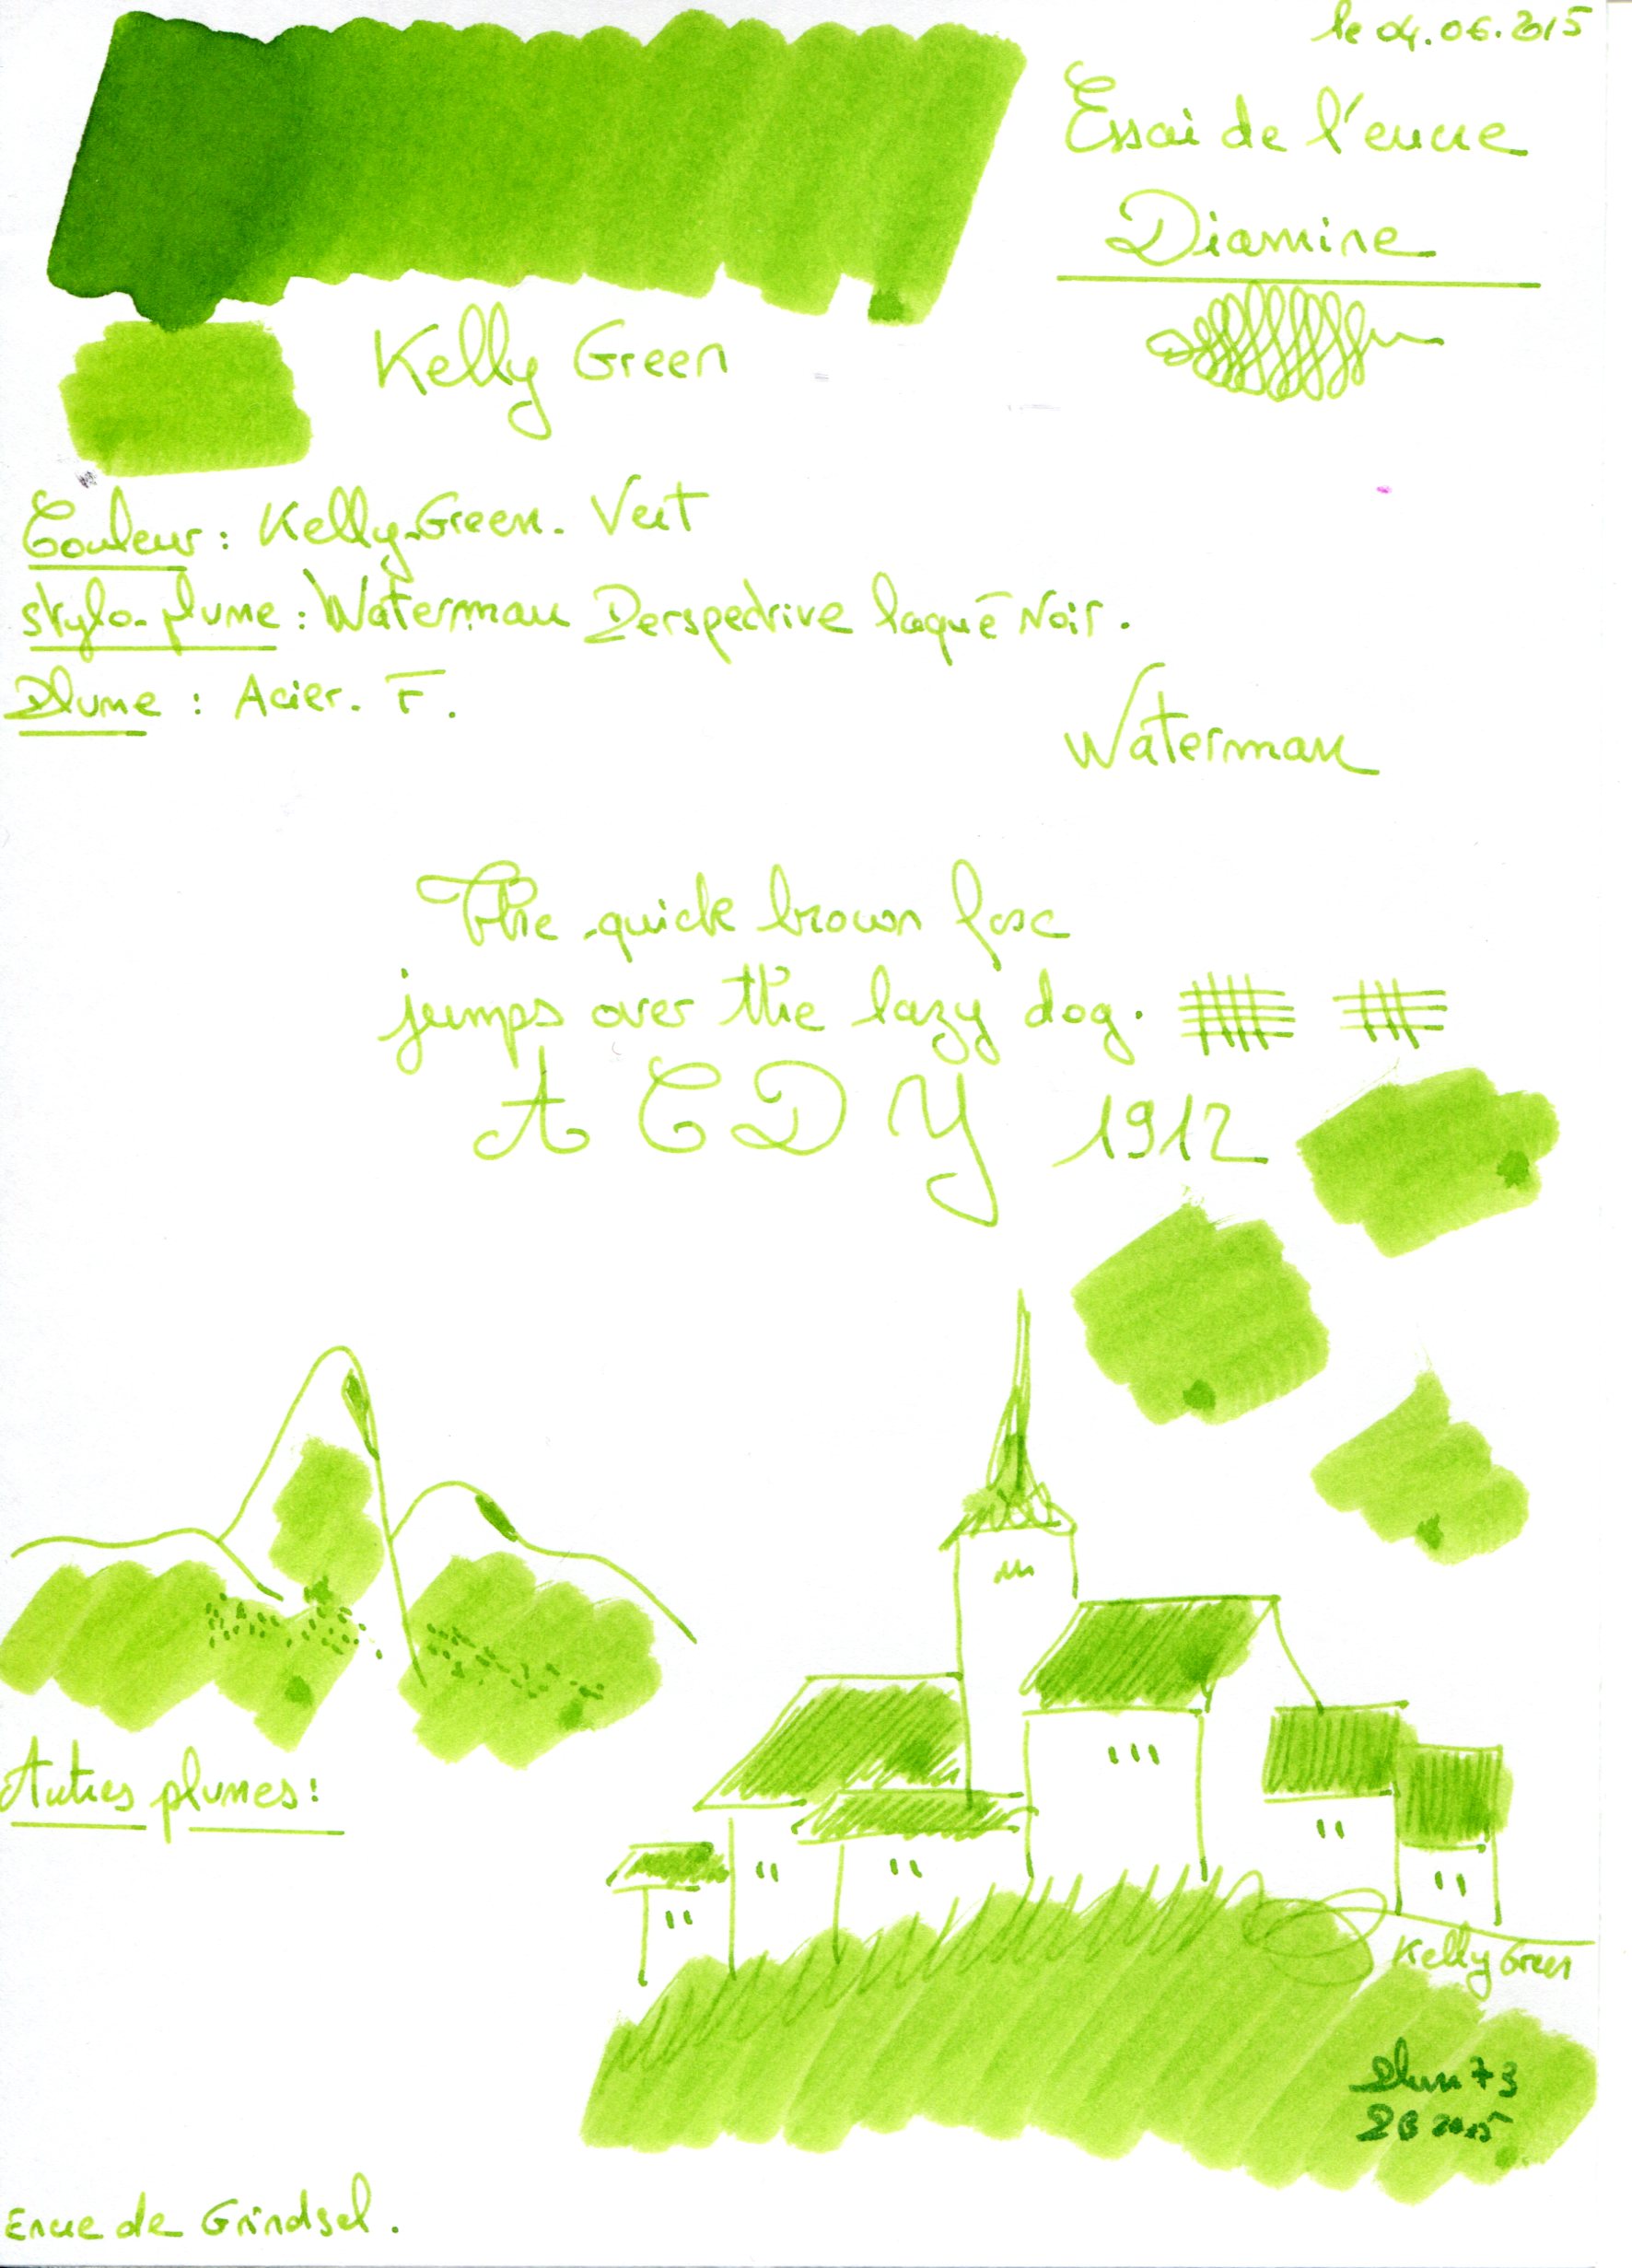 le 04.06.2015
Essai de l'encre
Diamine
Kelly Green
Couleur : Kelly-Green. Vert
Stylo-plume : Waterman Perspective laqué Noir.
Plume : Acier. F.
Waterman
The quick brown fox
jumps over the lazy dog.
A C D Y 1912
Autres plumes :
Kelly Green
Plum 73
2015
Encre de Grindsel.